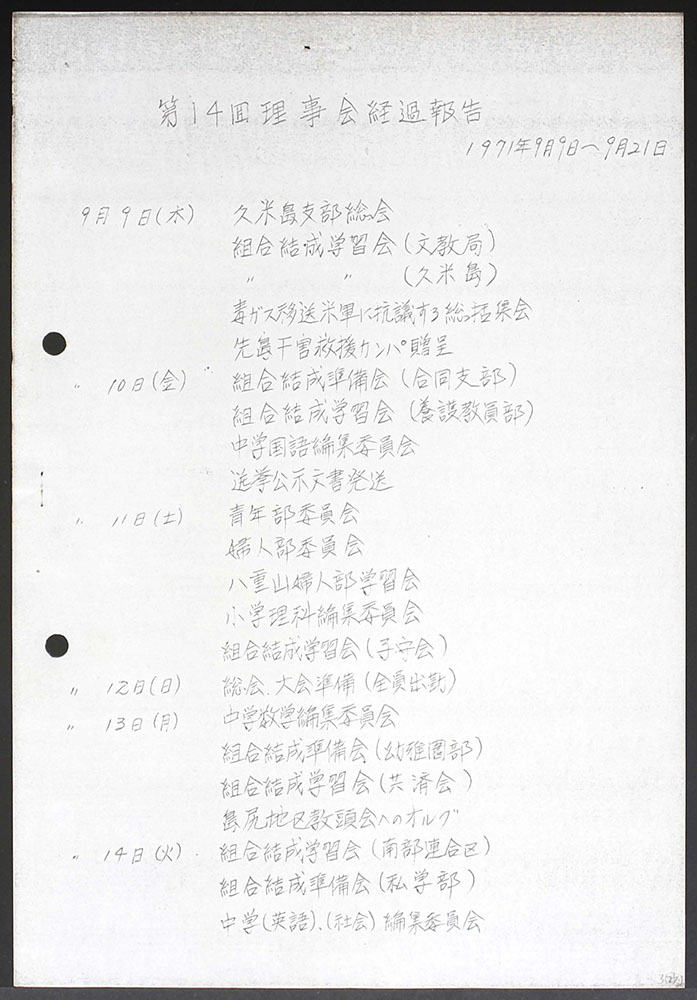 第14回理事会経過報告
1971年9月9日〜9月21日
9月9日(木) 久米島支部総会
組合結成学習会(文教局)
〃 〃 (久米島)
毒ガス移送米軍に抗議する総括集会
先島干害救援カンパ贈呈
〃 10日(金) 組合結成準備会(合同支部)
組合結成学習会(養護教員部)
中学国語編集委員会
選挙公示文書発送
〃 11日(土) 青年部委員会
婦人部委員会
八重山婦人部学習会
小学理科編集委員会
組合結成学習会(子守会)
〃 12日(日) 総会、大会準備(全員出勤)
〃 13日(月) 中学数学編集委員会
組合結成準備会(幼稚園部)
組合結成学習会(共済会)
島尻地区教頭会へのオルグ
〃 14日(火) 組合結成学習会(南部連合区)
組合結成準備会(私学部)
中学(英語)、(社会)編集委員会